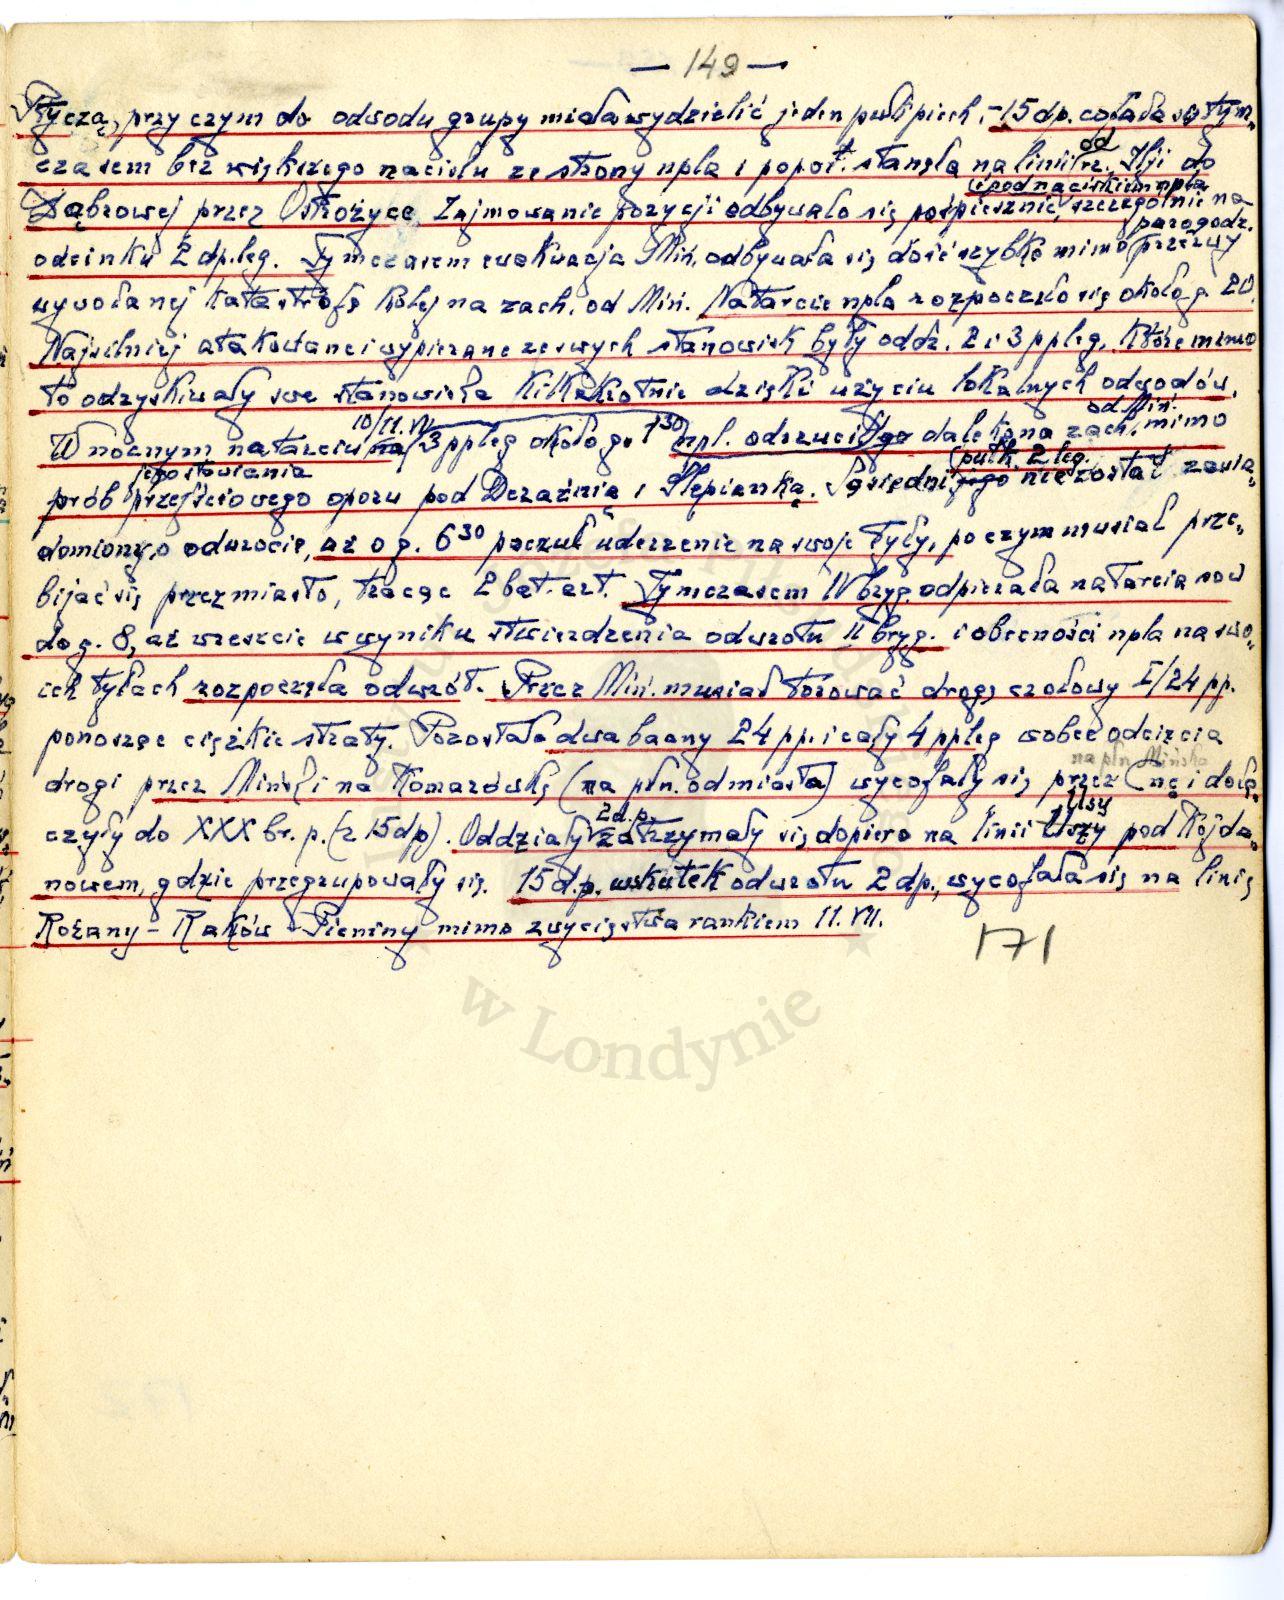 — 149 —
Ptyczą, przy czym do odwodu grupy miała wydzielić jeden pułk piech. – 15 dp. cofała się tym-
czasem bez większego nacisku ze strony npla i popoł. stanęła na linii od rz. Ilji do
i pod naciskiem npla
Dąbrowej przez Ostrożyce. Zajmowanie pozycji odbywało się pośpiesznie, szczególnie na
parogodz.
odcinku 2 dp.leg. Tymczasem ewakuacja Miń. odbywała się dość szybko mimo przerwy
wywołanej katastrofą kolej. na zach. od Miń. Natarcie npla rozpoczęło się około g. 20.
Najsilniej atakowane i wypierane ze swych stanowisk były oddz. 2 i 3 ppleg, które mimo
to odzyskiwały swe stanowiska kilkakrotnie dzięki użyciu lokalnych odwodów.
10/11.VII od Miń.
W nocnym natarciu na 3 ppleg około g. 1³⁰ npl. odrzucił go daleko na zach. mimo
jego stawienia pułk. 2 leg.
prób przejściowego oporu pod Deraźnią i Slepianką. Sąsiedni nie został zawia-
domiony o odwrocie, aż o g. 6³⁰ poczuł uderzenie na swoje tyły, po czym musiał prze-
bijać się przez miasto, tracąc 2 bat. art. Tymczasem IV bryg. odpierała natarcia sow
do g. 8, aż wreszcie w wyniku stwierdzenia odwrotu II bryg. i obecności npla na swo-
ich tyłach rozpoczęła odwrót. Przez Miń. musiał torować drogę czołowy I/24 pp.
ponosząc ciężkie straty. Pozostałe dwa baony 24 pp. i cały 4 ppleg wobec odcięcia
na płn. Mińska
drogi przez Mińsk i na Komarówkę (na płn. od miasta) wycofały się przez nę i dołą-
2 d.p. Usy
czyły do XXX br. p. (z 15 dp). Oddziały zatrzymały się dopiero na linii Uszy pod Kojda-
nowem, gdzie przegrupowały się. 15 d.p. wskutek odwrotu 2 dp., wycofała się na linię
Rożany – Raków – Pieniny mimo zwycięstwa rankiem 11.VII.
171
w Londynie